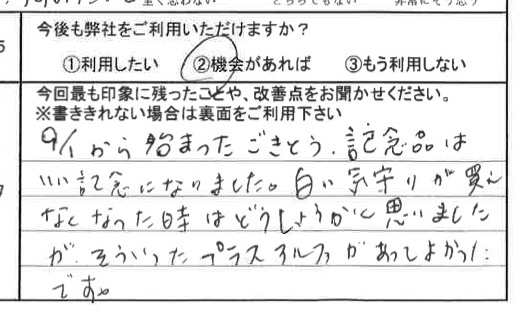 今後も弊社をご利用いただけますか?
①利用したい ②機会があれば ③もう利用しない
今回最も印象に残ったことや、改善点をお聞かせください。
※書ききれない場合は裏面をご利用下さい
9/1から始まったごきとう、記念品は
いい記念になりました。白い気守りが買え
なくなった時はどうしようかと思いました
が、そういったプラスアルファがあってよかった
です。